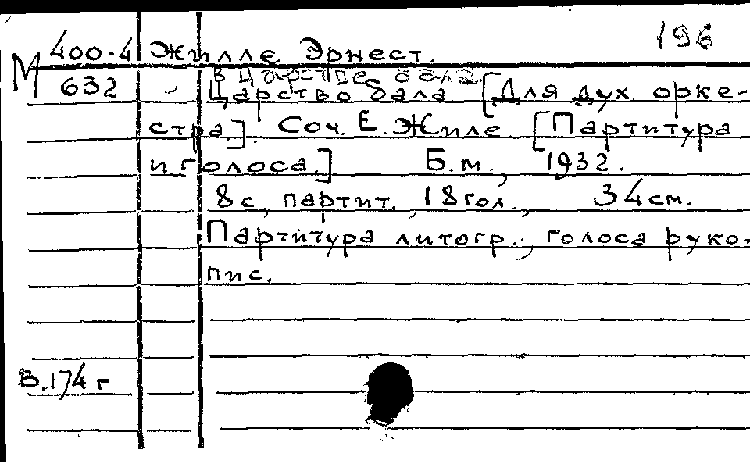 196
М 400-4 Жилле Эрнест.
632 В царстве бала
Царство бала [Для дух. орке-
стра.]. Соч. Е. Жиле. [Партитура
и голоса.] Б.м., 1932.
8с. партит., 18 гол., 34 см.
Партитура литогр., голоса руко-
пис.
В.174 г